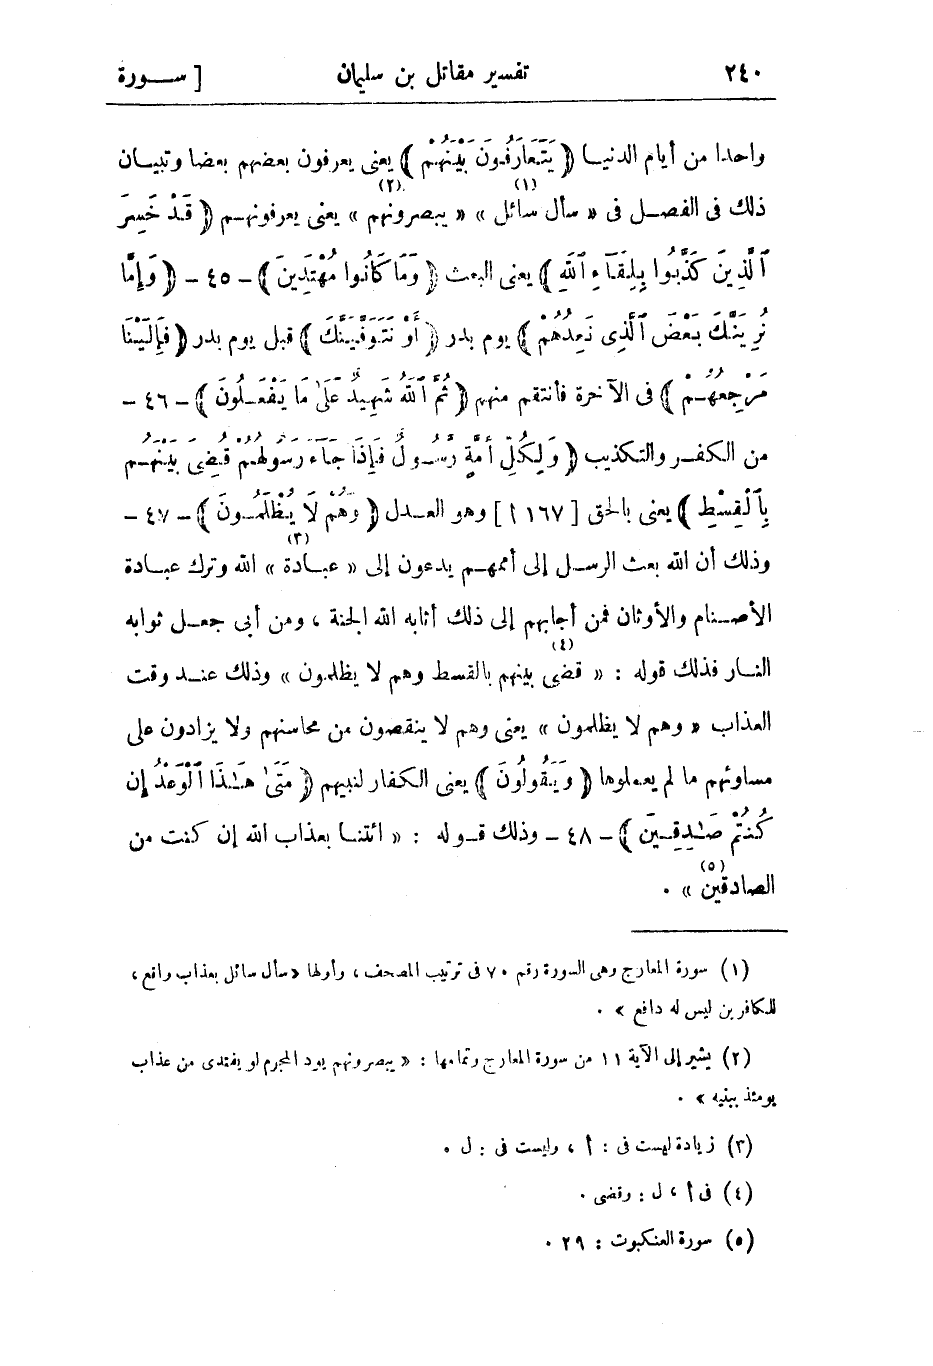 ٢٤٠ تفسير مقاتل بن سليمان [ ســـورة
واحدا من أيام الدنيـا ﴿ يَتَعَارَفُونَ بَيْنَهُمْ ﴾ يعنى يعرفون بعضهم بعضا وتبيـان
ذلك فى الفصـل فى « سأل سائل (١) » « يبصرونهم (٢) » يعنى يعرفونهـم ﴿ قَدْ خَسِرَ
ٱلَّذِينَ كَذَّبُوا بِلِقَآءِ ٱللَّهِ ﴾ يعنى البعث ﴿ وَمَا كَانُوا مُهْتَدِينَ ﴾ - ٤٥ - ﴿ وَإِمَّا
نُرِيَنَّكَ بَعْضَ ٱلَّذِى نَعِدُهُمْ ﴾ يوم بدر ﴿ أَوْ نَتَوَفَّيَنَّكَ ﴾ قبل يوم بدر ﴿ فَإِلَيْنَا
مَرْجِعُهُـمْ ﴾ فى الآخرة فأنتقم منهم ﴿ ثُمَّ ٱللَّهُ شَهِيدٌ عَلَىٰ مَا يَفْعَـلُونَ ﴾ - ٤٦ -
من الكفـر والتكذيب ﴿ وَلِكُلِّ أُمَّةٍ رَّسُـولٌ فَإِذَا جَآءَ رَسُولُهُمْ قُضِىَ بَيْنَهُـم
بِٱلْقِسْطِ ﴾ يعنى بالحق [ ١٦٧ أ ] وهو العـدل ﴿ وَهُمْ لَا يُظْلَمُـونَ ﴾ - ٤٧ -
وذلك أن الله بعث الرسـل إلى أممهـم يدعون إلى « عبـادة (٣) » الله وترك عبـادة
الأصـنام والأوثان فمن أجابهم إلى ذلك أثابه الله الجنة ، ومن أبى جعـل ثوابه
النـار فذلك قوله : « قضى (٤) بينهم بالقسط وهم لا يظلمون » وذلك عنـد وقت
العذاب « وهم لا يظلمون » يعنى وهم لا ينقصون من محاسنهم ولا يزادون على
مساوئهم ما لم يعملوها ﴿ وَيَقُولُونَ ﴾ يعنى الكفار لنبيهم ﴿ مَتَىٰ هَـٰذَا ٱلْوَعْدُ إِن
كُنتُمْ صَـٰدِقِـينَ ﴾ - ٤٨ - وذلك قـوله : « ائتنـا بعذاب الله إن كنت من
الصادقين (٥) » .
(١) سورة المعارج وهى السورة رقم ٧٠ فى ترتيب المصحف ، وأولها «سأل سائل بعذاب واقع ،
للكافرين ليس له دافع » .
(٢) يشير إلى الآية ١١ من سورة المعارج وتمامها : « يبصرونهم يود المجرم لو يفتدى من عذاب
يومئذ ببنيه » .
(٣) زيادة ليست فى : أ ، وليست فى : ل .
(٤) فى أ ، ل : وقضى .
(٥) سورة العنكبوت : ٢٩ .